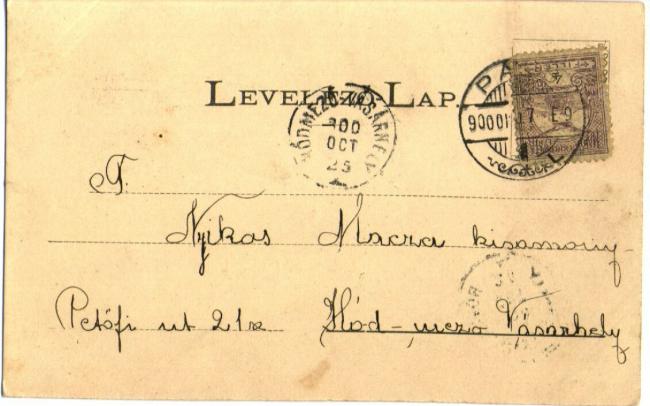 LEVELEZŐ-LAP.
HÓDMEZŐ-VÁSÁRHELY
900
OCT
25
T.
Nyikos Macza kisasszony-
Petőfi ut 21 sz Hód-mező Vásárhely